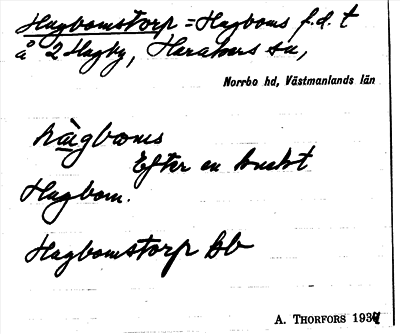 Hagbomstorp = Hagboms f.d. t
å 2 Hagby, Haraker sn,
Norrbo hd, Västmanlands län
hàgbωms
Efter en knekt
Hagbom.
Hagbomstorp bb
A. Thorfors 1934